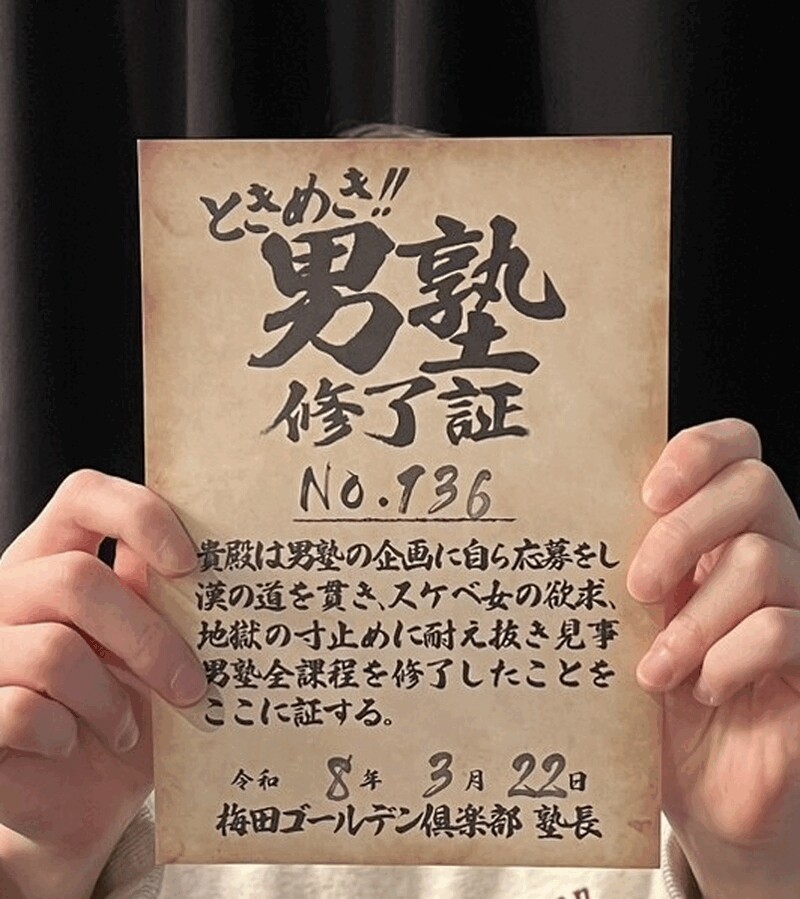 ときめき!!
男塾
修了証
No.136
貴殿は男塾の企画に自ら応募をし
漢の道を貫き、スケベ女の欲求、
地獄の寸止めに耐え抜き見事
男塾全課程を修了したことを
ここに証する。
令和 8年 3月 22日
梅田ゴールデン倶楽部 塾長